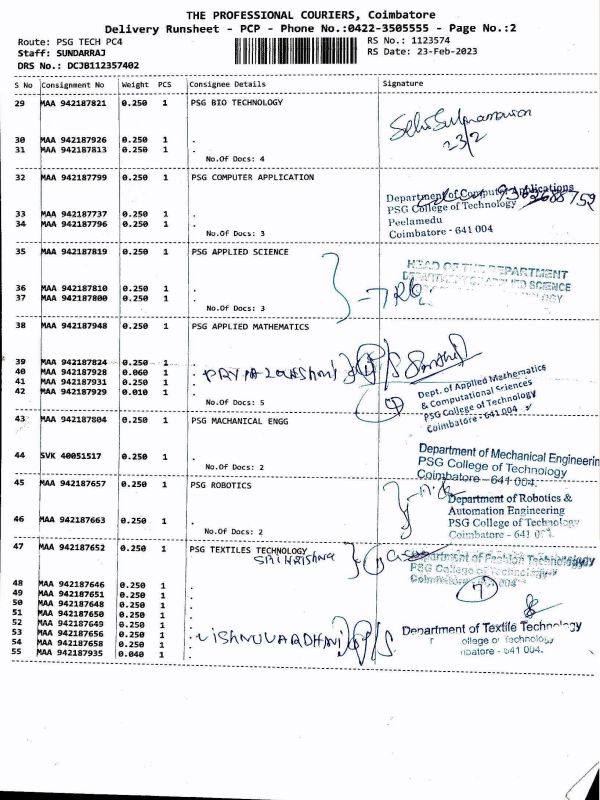 THE PROFESSIONAL COURIERS, Coimbatore
Delivery Runsheet - PCP - Phone No.:0422-3505555 - Page No.:2
Route: PSG TECH PC4
RS No.: 1123574
Staff: SUNDARRAJ
RS Date: 23-Feb-2023
DRS No.: DCJB112357402
S No Consignment No Weight PCS Consignee Details Signature
29 MAA 942187821 0.250 1 PSG BIO TECHNOLOGY
23/2
30 MAA 942187926 0.250 1 .
31 MAA 942187813 0.250 1 .
No.Of Docs: 4
32 MAA 942187799 0.250 1 PSG COMPUTER APPLICATION
Department of Computer Applications
PSG College of Technology
Peelamedu
Coimbatore - 641 004
33 MAA 942187737 0.250 1 .
34 MAA 942187796 0.250 1 .
No.Of Docs: 3
35 MAA 942187819 0.250 1 PSG APPLIED SCIENCE
HEAD OF THE DEPARTMENT
DEPARTMENT OF APPLIED SCIENCE
36 MAA 942187810 0.250 1 .
37 MAA 942187800 0.250 1 .
No.Of Docs: 3
38 MAA 942187948 0.250 1 PSG APPLIED MATHEMATICS
39 MAA 942187824 0.250 1 .
40 MAA 942187928 0.060 1 .
41 MAA 942187931 0.250 1 .
42 MAA 942187929 0.010 1 .
No.Of Docs: 5
Dept. of Applied Mathematics
& Computational Sciences
PSG College of Technology
Coimbatore - 641 004
43 MAA 942187804 0.250 1 PSG MACHANICAL ENGG
44 SVK 40051517 0.250 1 .
No.Of Docs: 2
Department of Mechanical Engineerin
PSG College of Technology
Coimbatore - 641 004.
45 MAA 942187657 0.250 1 PSG ROBOTICS
Department of Robotics &
Automation Engineering
PSG College of Technology
Coimbatore - 641
46 MAA 942187663 0.250 1 .
No.Of Docs: 2
47 MAA 942187652 0.250 1 PSG TEXTILES TECHNOLOGY
SAI KRISHNA
Department of Fashion Technology
PSG College of Technology
Coimbatore 004
7
48 MAA 942187646 0.250 1 .
49 MAA 942187651 0.250 1 .
50 MAA 942187648 0.250 1 .
51 MAA 942187650 0.250 1 .
52 MAA 942187649 0.250 1 .
53 MAA 942187656 0.250 1 .
54 MAA 942187658 0.250 1 .
55 MAA 942187935 0.040 1 .
VISHNUVARDHAN
Department of Textile Technology
ollege of Technology
mbatore - 641 004.